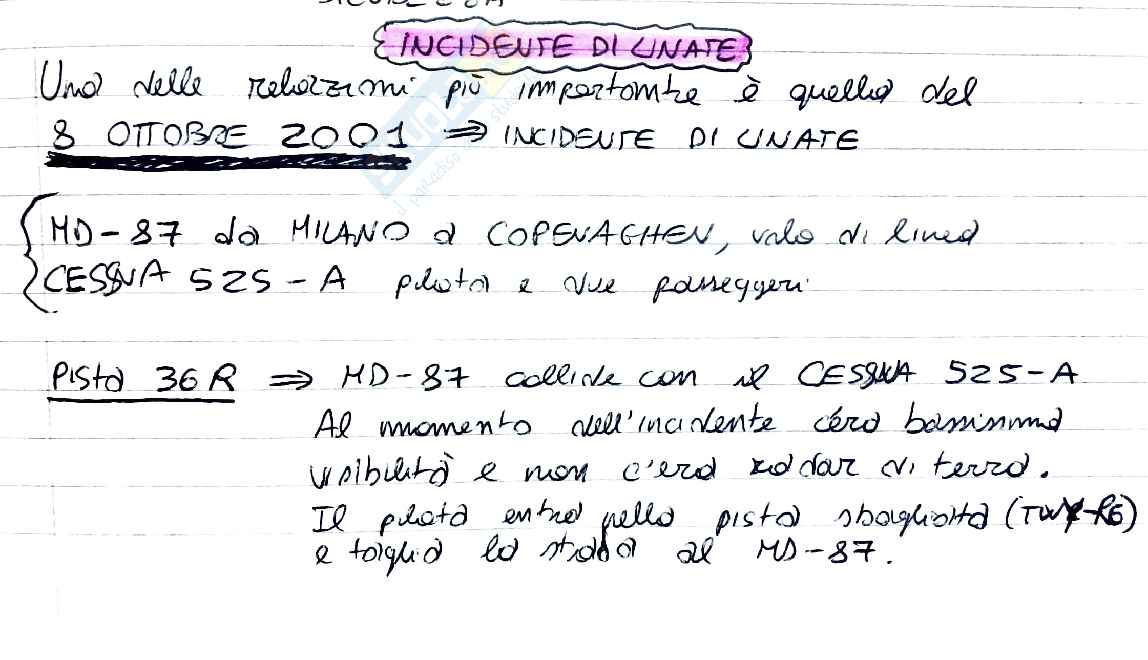 INCIDENTE DI LINATE
Una delle relazioni più importante è quella del
8 OTTOBRE 2001 ⇒ INCIDENTE DI LINATE
MD-87 da MILANO a COPENAGHEN, volo di linea
CESSNA 525-A pilota e due passeggeri
Pista 36R ⇒ MD-87 collide con il CESSNA 525-A
Al momento dell'incidente c'éra bassissima
visibilità e non c'era radar di terra.
Il pilota entra nella pista sbagliata (TWY-R6)
e taglia la strada al MD-87.